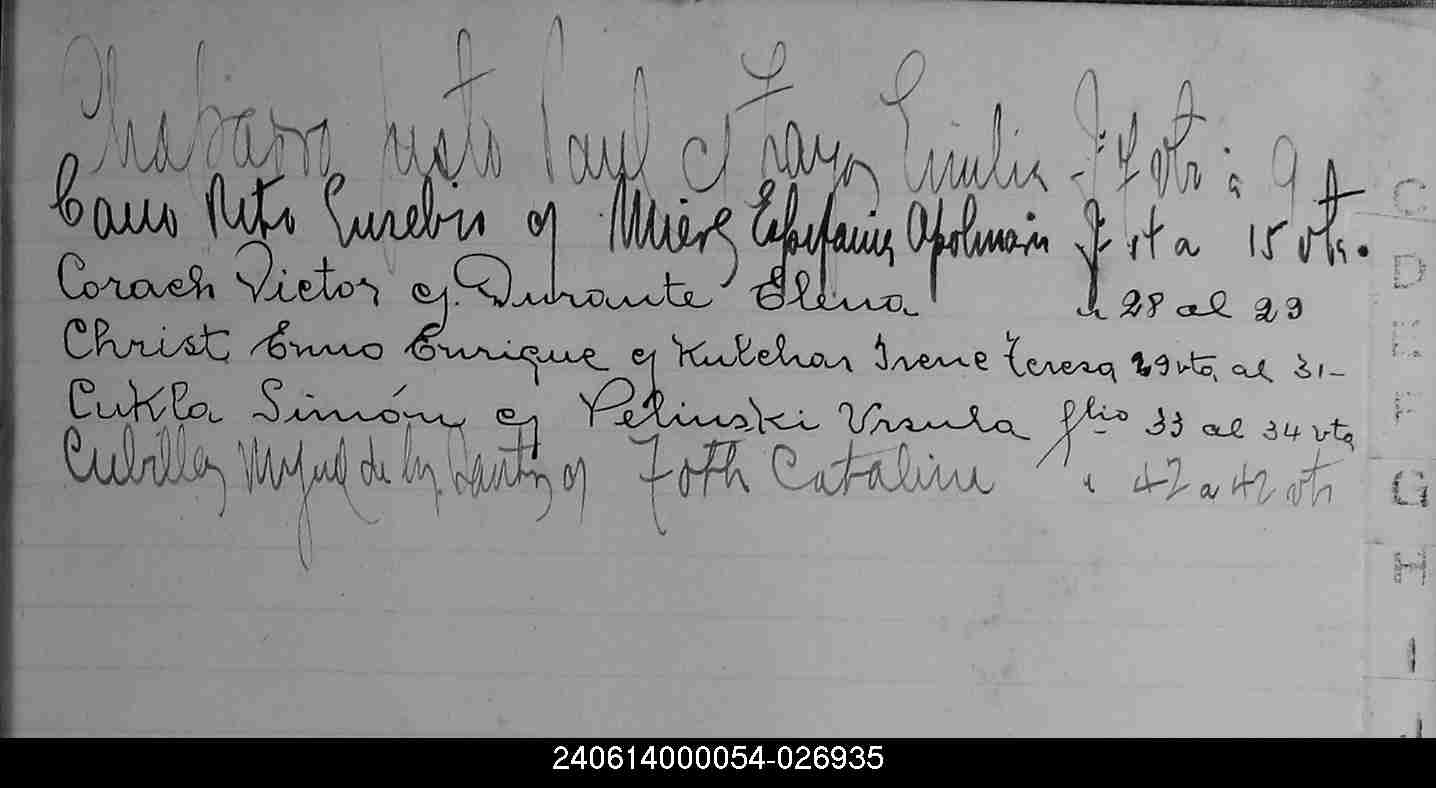 Justo Paul c/ Emilia F. 7 vta a 9
Cano Neto Eusebio c/ Epifania Apolinaria F a 15 vta.
Corach Victor cj. Durante Elena " 28 al 29
Christ, Enno Enrique cj Kutchar Irene Teresa 29 vta, al 31-
Cukla Simón cj Pelinski Ursula folio 33 al 34 vta
Cubilla Miguel de los Santos cj Foth Catalina " 42 a 42 vta
C
D
G
H
I
240614000054-026935